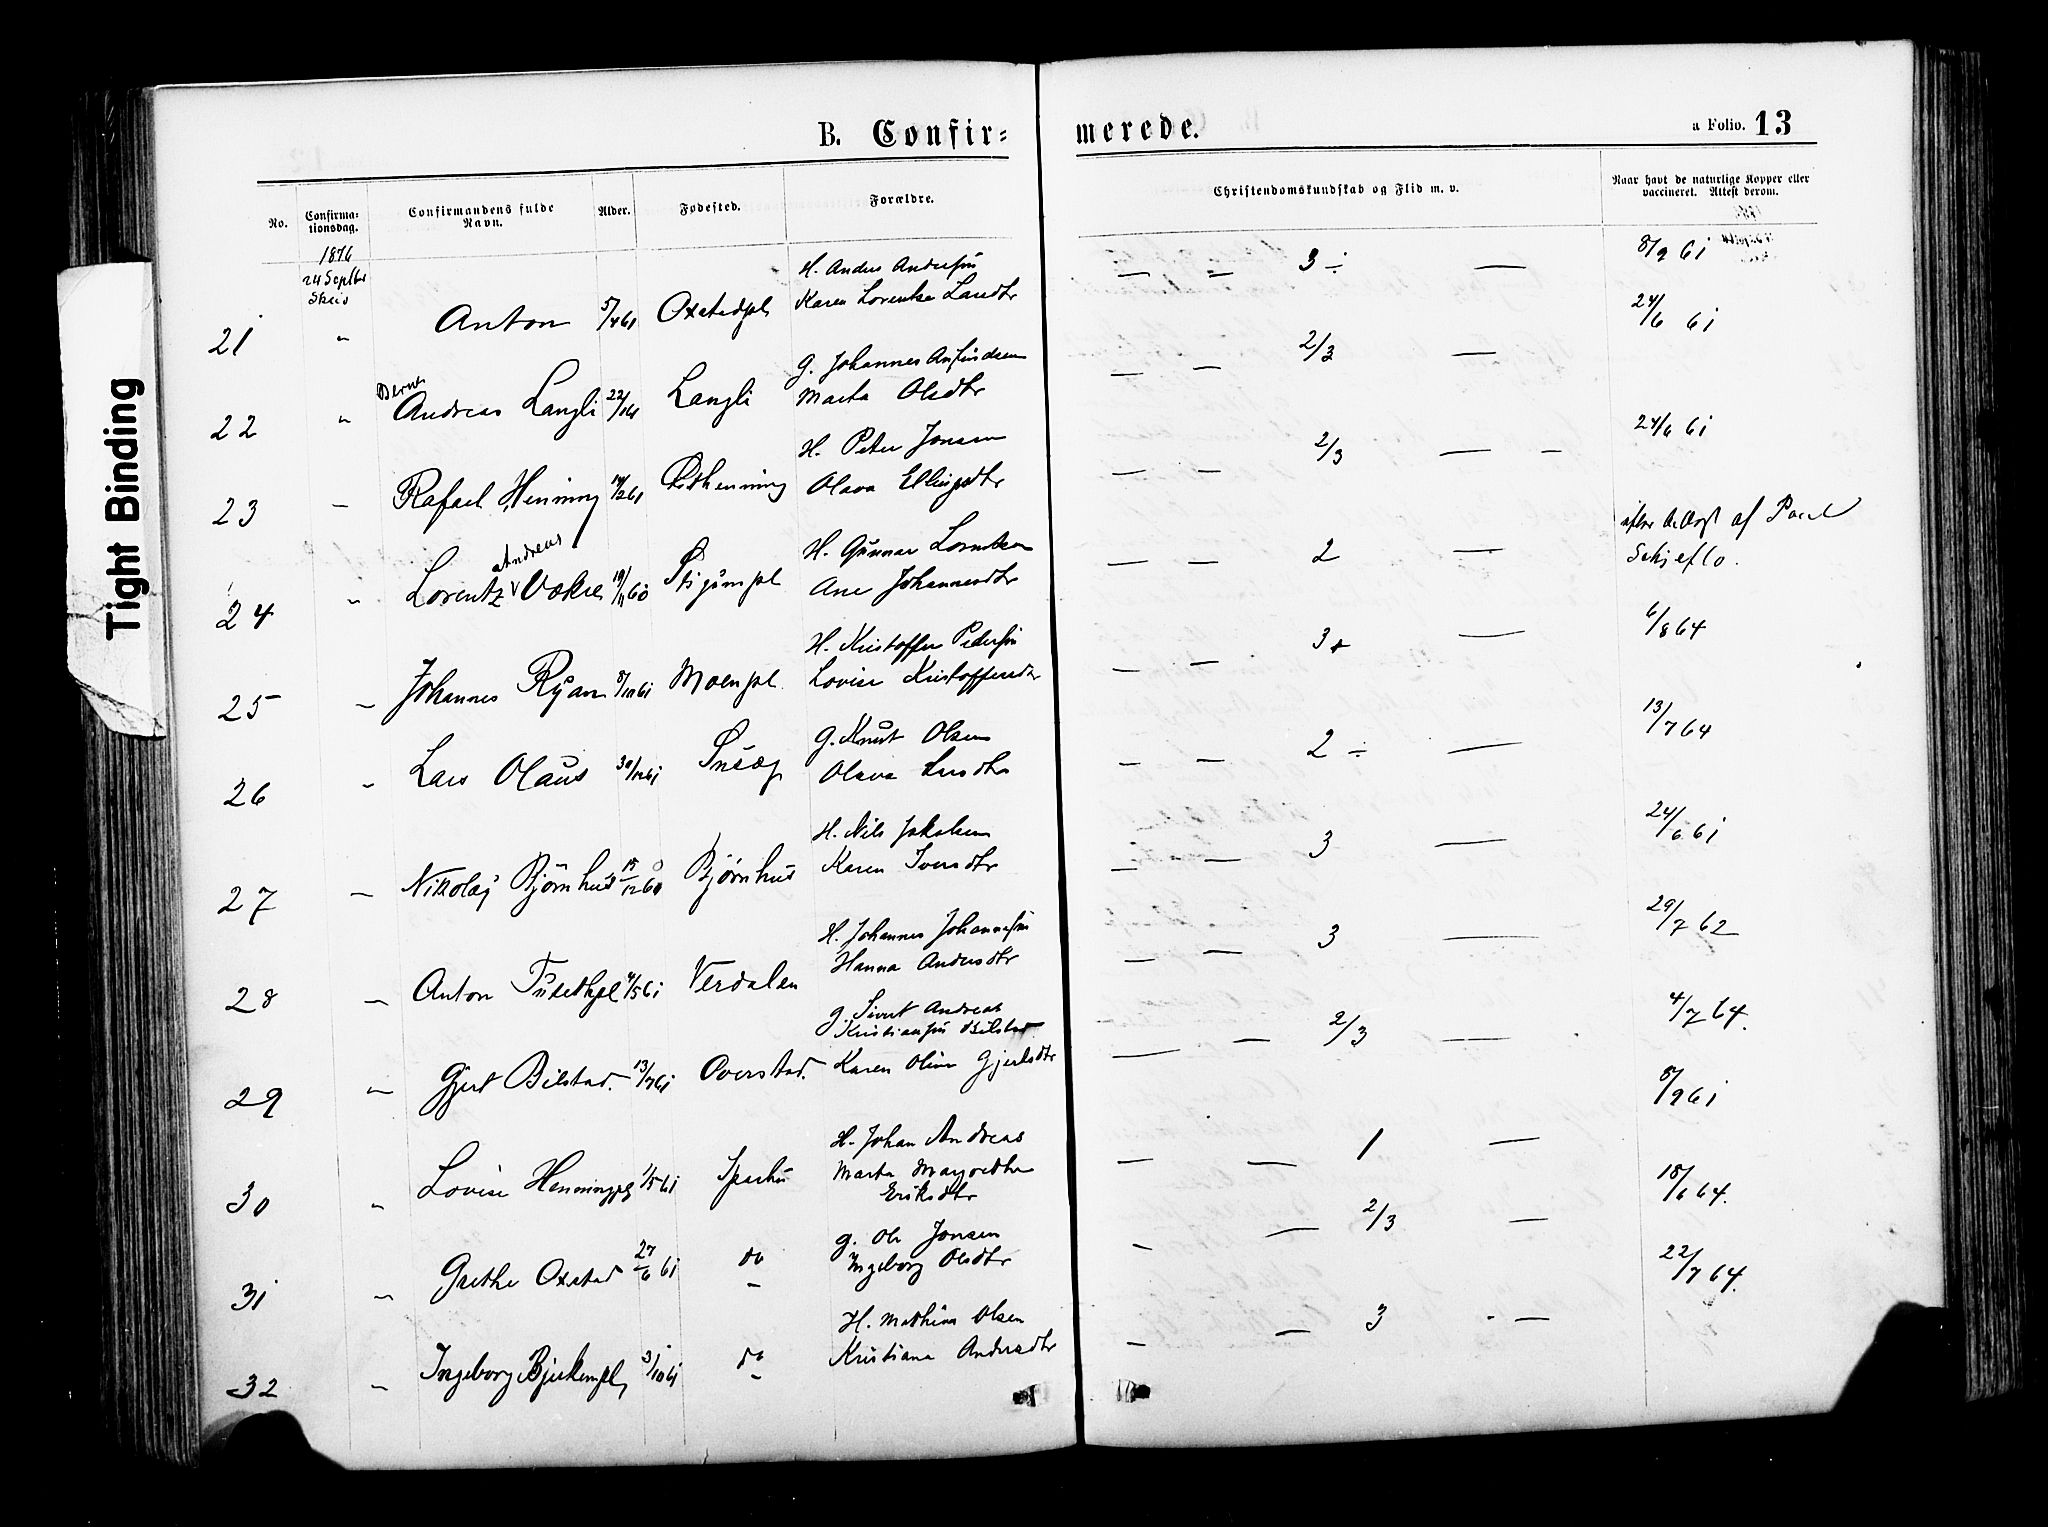 Tight Binding
B. Confir=
merede.
a Folio. 13
No.
Confirma-
tionsdag.
Confirmandens fulde
Navn.
Alder.
Fødested.
Forældre.
Christendomskundskab og Flid m. v.
Naar havt de naturlige Kopper eller
vaccineret. Attest derom.
1876
24 Septbr
21 " Anton 5/4 61 Oxstadpl
H. Anders
Karen Lorentse Larsdtr
3 ÷
8/9 61
22 " Bernt
Andreas Langli 22/1 61 Langli
G. Johannes Anfindsen
Marta Olsdtr
2/3
24/6 61
23 – Rafael Henning
H. Peter Jonsen
Olava Ellingsdtr
2/3
24/6 61
24 " Andreas
Lorentz Vokre 19/11 60
H. Gunnar Lorntsen
Ane Johannesdtr
2
af
Skjeflo.
25 – Johannes Ryan 8/10 61 Moenpl.
H. Kristoffer Pedersen
Lovise Kristoffersdtr
3+
6/8 64
26 " Lars Olaus
G. Knut Olsen
Olava
2 ÷
13/7 64
27 – Nikolaj Bjørnhus 15/12 60 Bjørnhus
H. Nils Jakobsen
Karen Iversdtr
3
24/6 61
28 – Anton 4/5 61 Verdalen
H. Johannes Johannesen
Hanna Andersdtr
3
29/7 62
29 – Gjert Bilstad. 13/7 61 Overstad.
G. Sivert Andreas
Kristiansen Bilstad
Karen Oline Gjertsdtr
2/3
4/7 64.
30 " Lovise Henningpl 1/5 61 Sparbu
H. Johan Andreas
Marta Margretha
Eriksdtr
1
8/9 61
31 " Grethe Oxstad 27/6 61 do
G. Ole Jonsen
Ingeborg Olsdtr
2/3
18/6 64.
32 " Ingeborg Bjerkempl 3/10 61 do
H. Mathias Olsen
Kristiana Andersdtr
3
22/7 64.